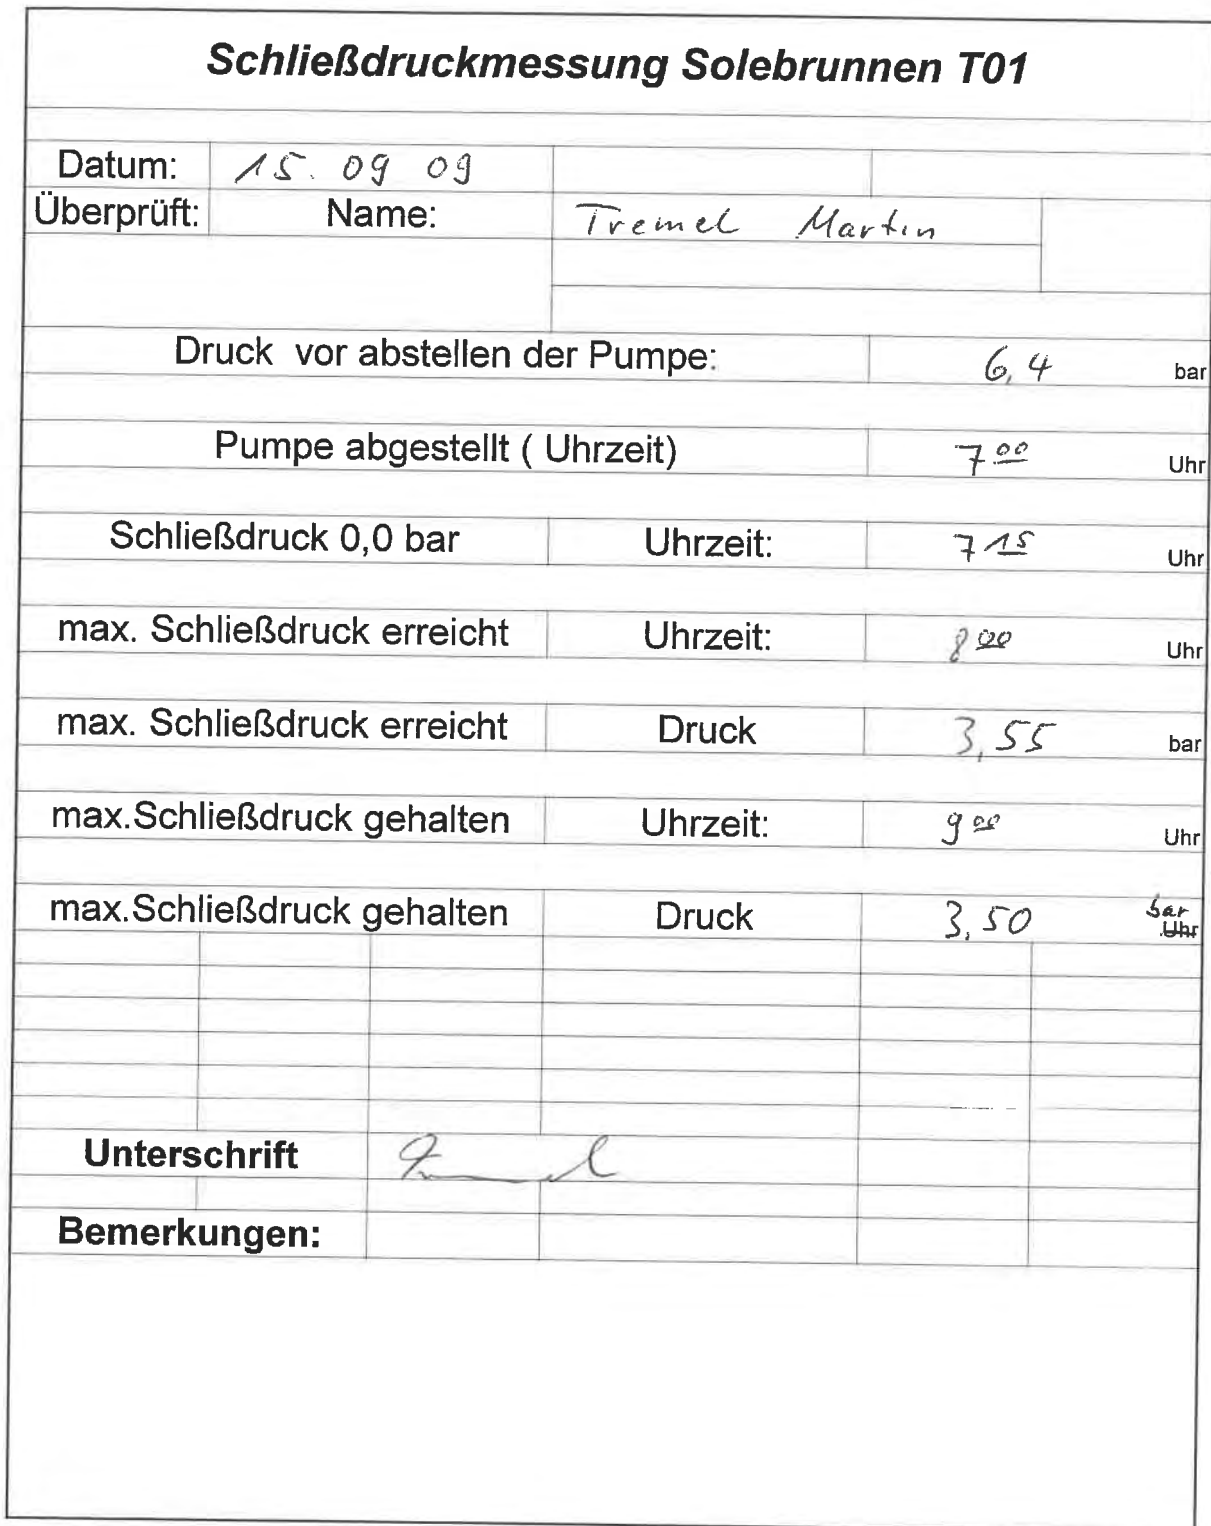 Schließdruckmessung Solebrunnen T01
Datum: 15. 09 09
Überprüft: Name: Tremel Martin
Druck vor abstellen der Pumpe: 6,4 bar
Pumpe abgestellt ( Uhrzeit) 7 00 Uhr
Schließdruck 0,0 bar Uhrzeit: 7 15 Uhr
max. Schließdruck erreicht Uhrzeit: 8 00 Uhr
max. Schließdruck erreicht Druck 3,55 bar
max.Schließdruck gehalten Uhrzeit: 9 00 Uhr
max.Schließdruck gehalten Druck 3,50 bar
Uhr
Unterschrift Tremel
Bemerkungen: